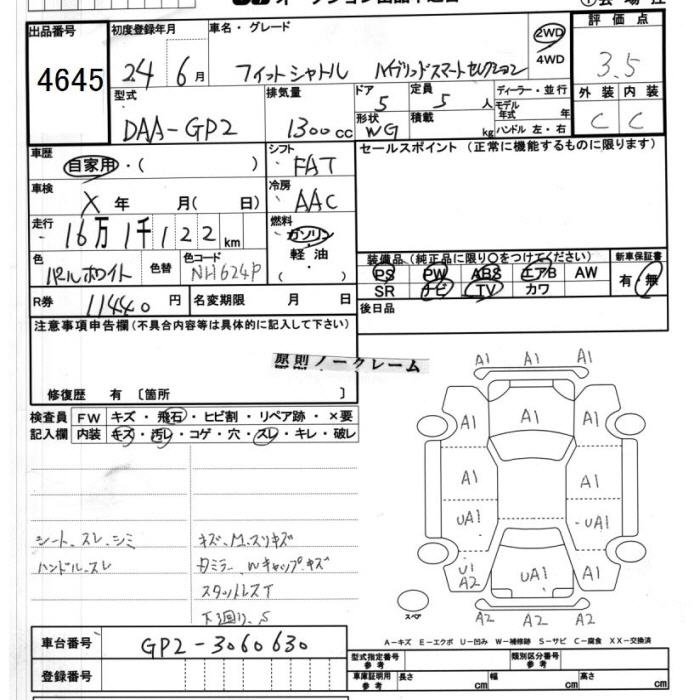 オークション出品申込書
出品番号 4645
初度登録年月 24年 6月
車名・グレード フィットシャトル ハイブリッドスマートセレクション
2WD 4WD
評価点 3.5
型式 DAA-GP2
排気量 1300cc
ドア 5 形状 WG
定員 5人 積載 kg
ディーラー・並行
モデル年式 年
ハンドル 左・右
外装 C 内装 C
車歴 自家用・( )
シフト FAT
セールスポイント (正常に機能するものに限ります)
車検 X年 月( 日)
冷房 AAC
走行 16万1千122km
燃料 ガソリン・軽油・( )
色 パールホワイト 色替 色コード NH624P
装備品 (純正品に限り○をつけてください)
PS PW ABS エアB AW
SR ナビ TV カワ
新車保証書 有・無
R券 11440円 名変期限 月 日
後日品
注意事項申告欄(不具合内容等は具体的に記入して下さい)
原則ノークレーム
修復歴 有〔箇所 〕
検査員記入欄 FW キズ・飛石・ヒビ割・リペア跡・×要
内装 キズ・汚レ・コゲ・穴・スレ・キレ・破レ
シート、スレ、シミ
ハンドル、スレ
キズ、M、スリキズ
ミラー、Wキャップ、キズ
下廻り、S
A1 A1 A1
A1 A1 A1
A1 A1 A1
UA1 UA1
U1 A2 UA1 A1
A2 A2 A2
スペア
A-キズ E-エクボ U-凹み W-補修跡 S-サビ C-腐食 XX-交換済
車台番号 GP2-3060630
型式指定番号 参考 類別区分番号 参考
登録番号
車庫証明用 参考 長さ cm 幅 cm 高さ cm